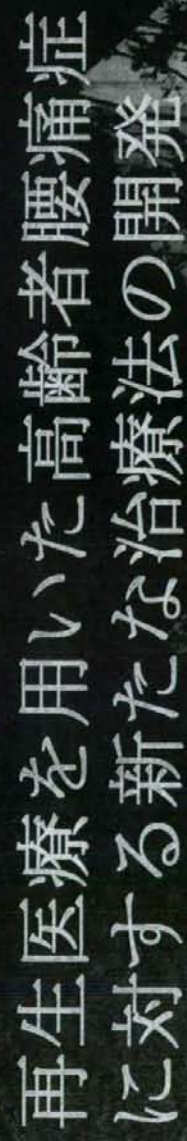 再生医療を用いた高齢者腰痛症
に対する新たな治療法の開発